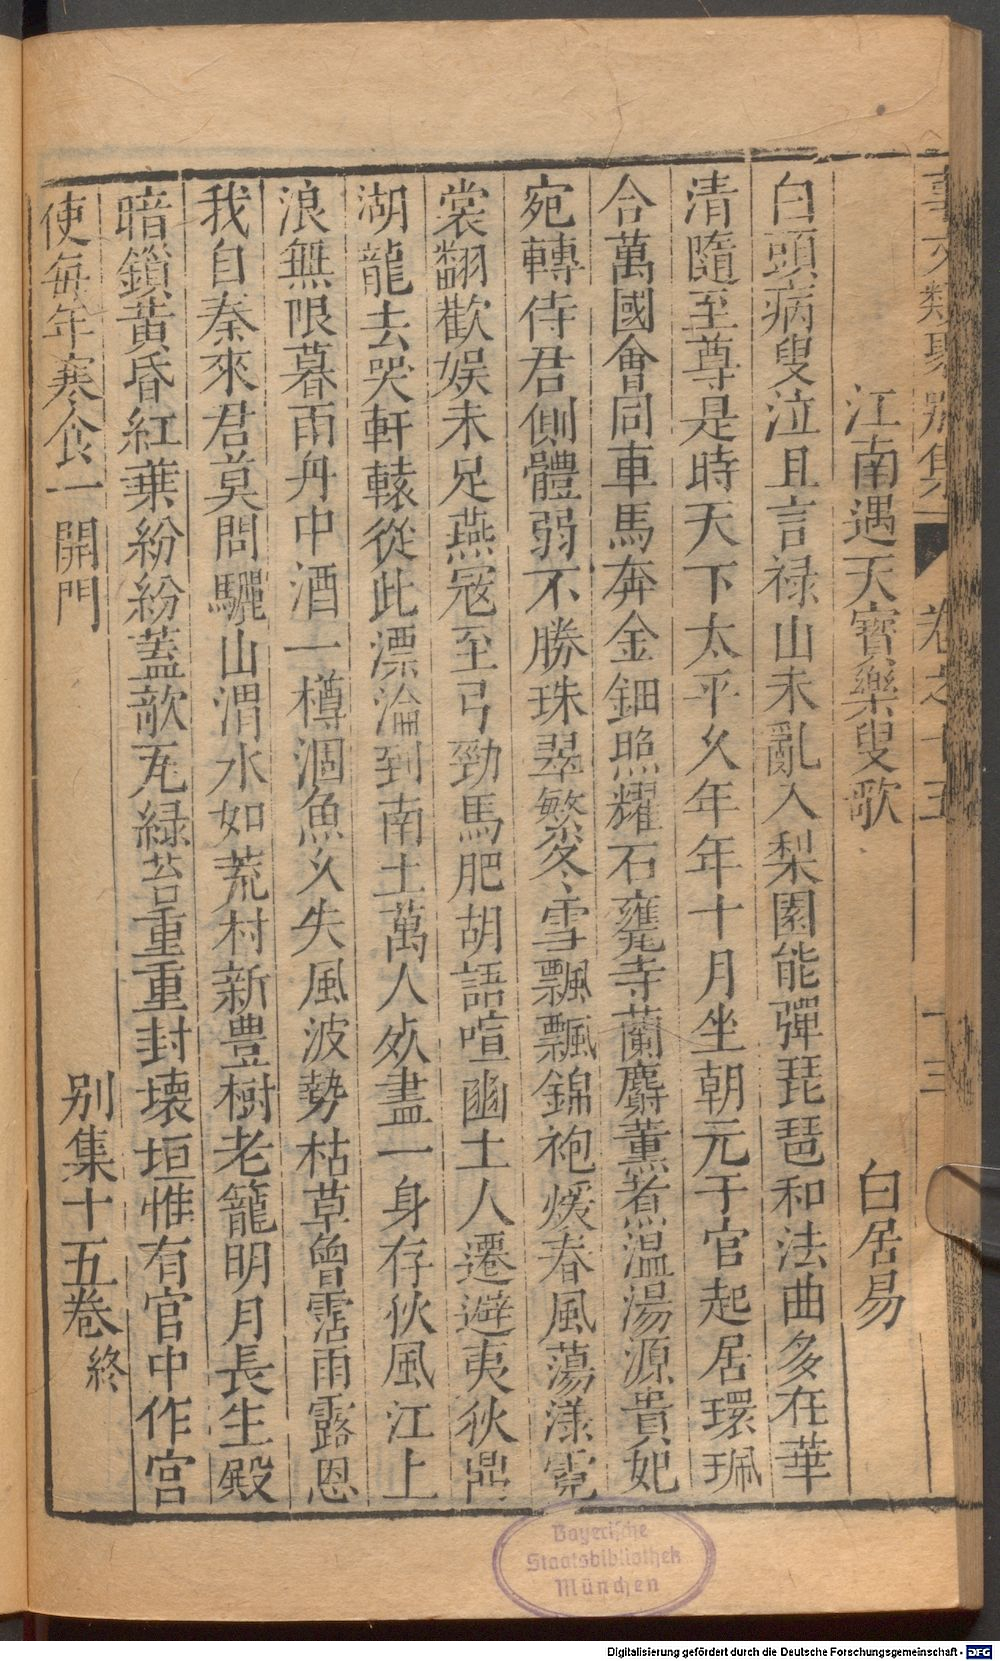 事文類聚別集 卷之十五 十三
江南遇天寳樂叟歌 白居易
白頭病叟泣且言禄山未亂入梨園能彈琵琶和法曲多在華
清隨至尊是時天下太平乆年年十月坐朝元千官起居環珮
合萬國會同車馬奔金鈿照耀石甕寺蘭麝薰煮温湯源貴妃
宛轉侍君側體弱不勝珠翠繁冬雪飄飄錦袍煖春風蕩漾霓
裳翻歡娱未足燕冦至弓勁馬肥胡語喧豳土人遷避夷狄鼎
湖龍去哭軒轅從此漂淪到南土萬人死盡一身存秋風江上
浪無限暮雨舟中酒一樽涸魚乆失風波勢枯草曾霑雨露恩
我自秦來君莫問驪山渭水如荒村新豊樹老籠明月長生殿
暗鎖黃昏紅葉紛紛蓋欹瓦緑苔重重封壞垣惟有官中作宫
使每年寒食一開門
別集十五卷終
Bayerische
Staatsbibliothek
München
Digitalisierung gefördert durch die Deutsche Forschungsgemeinschaft - DFG